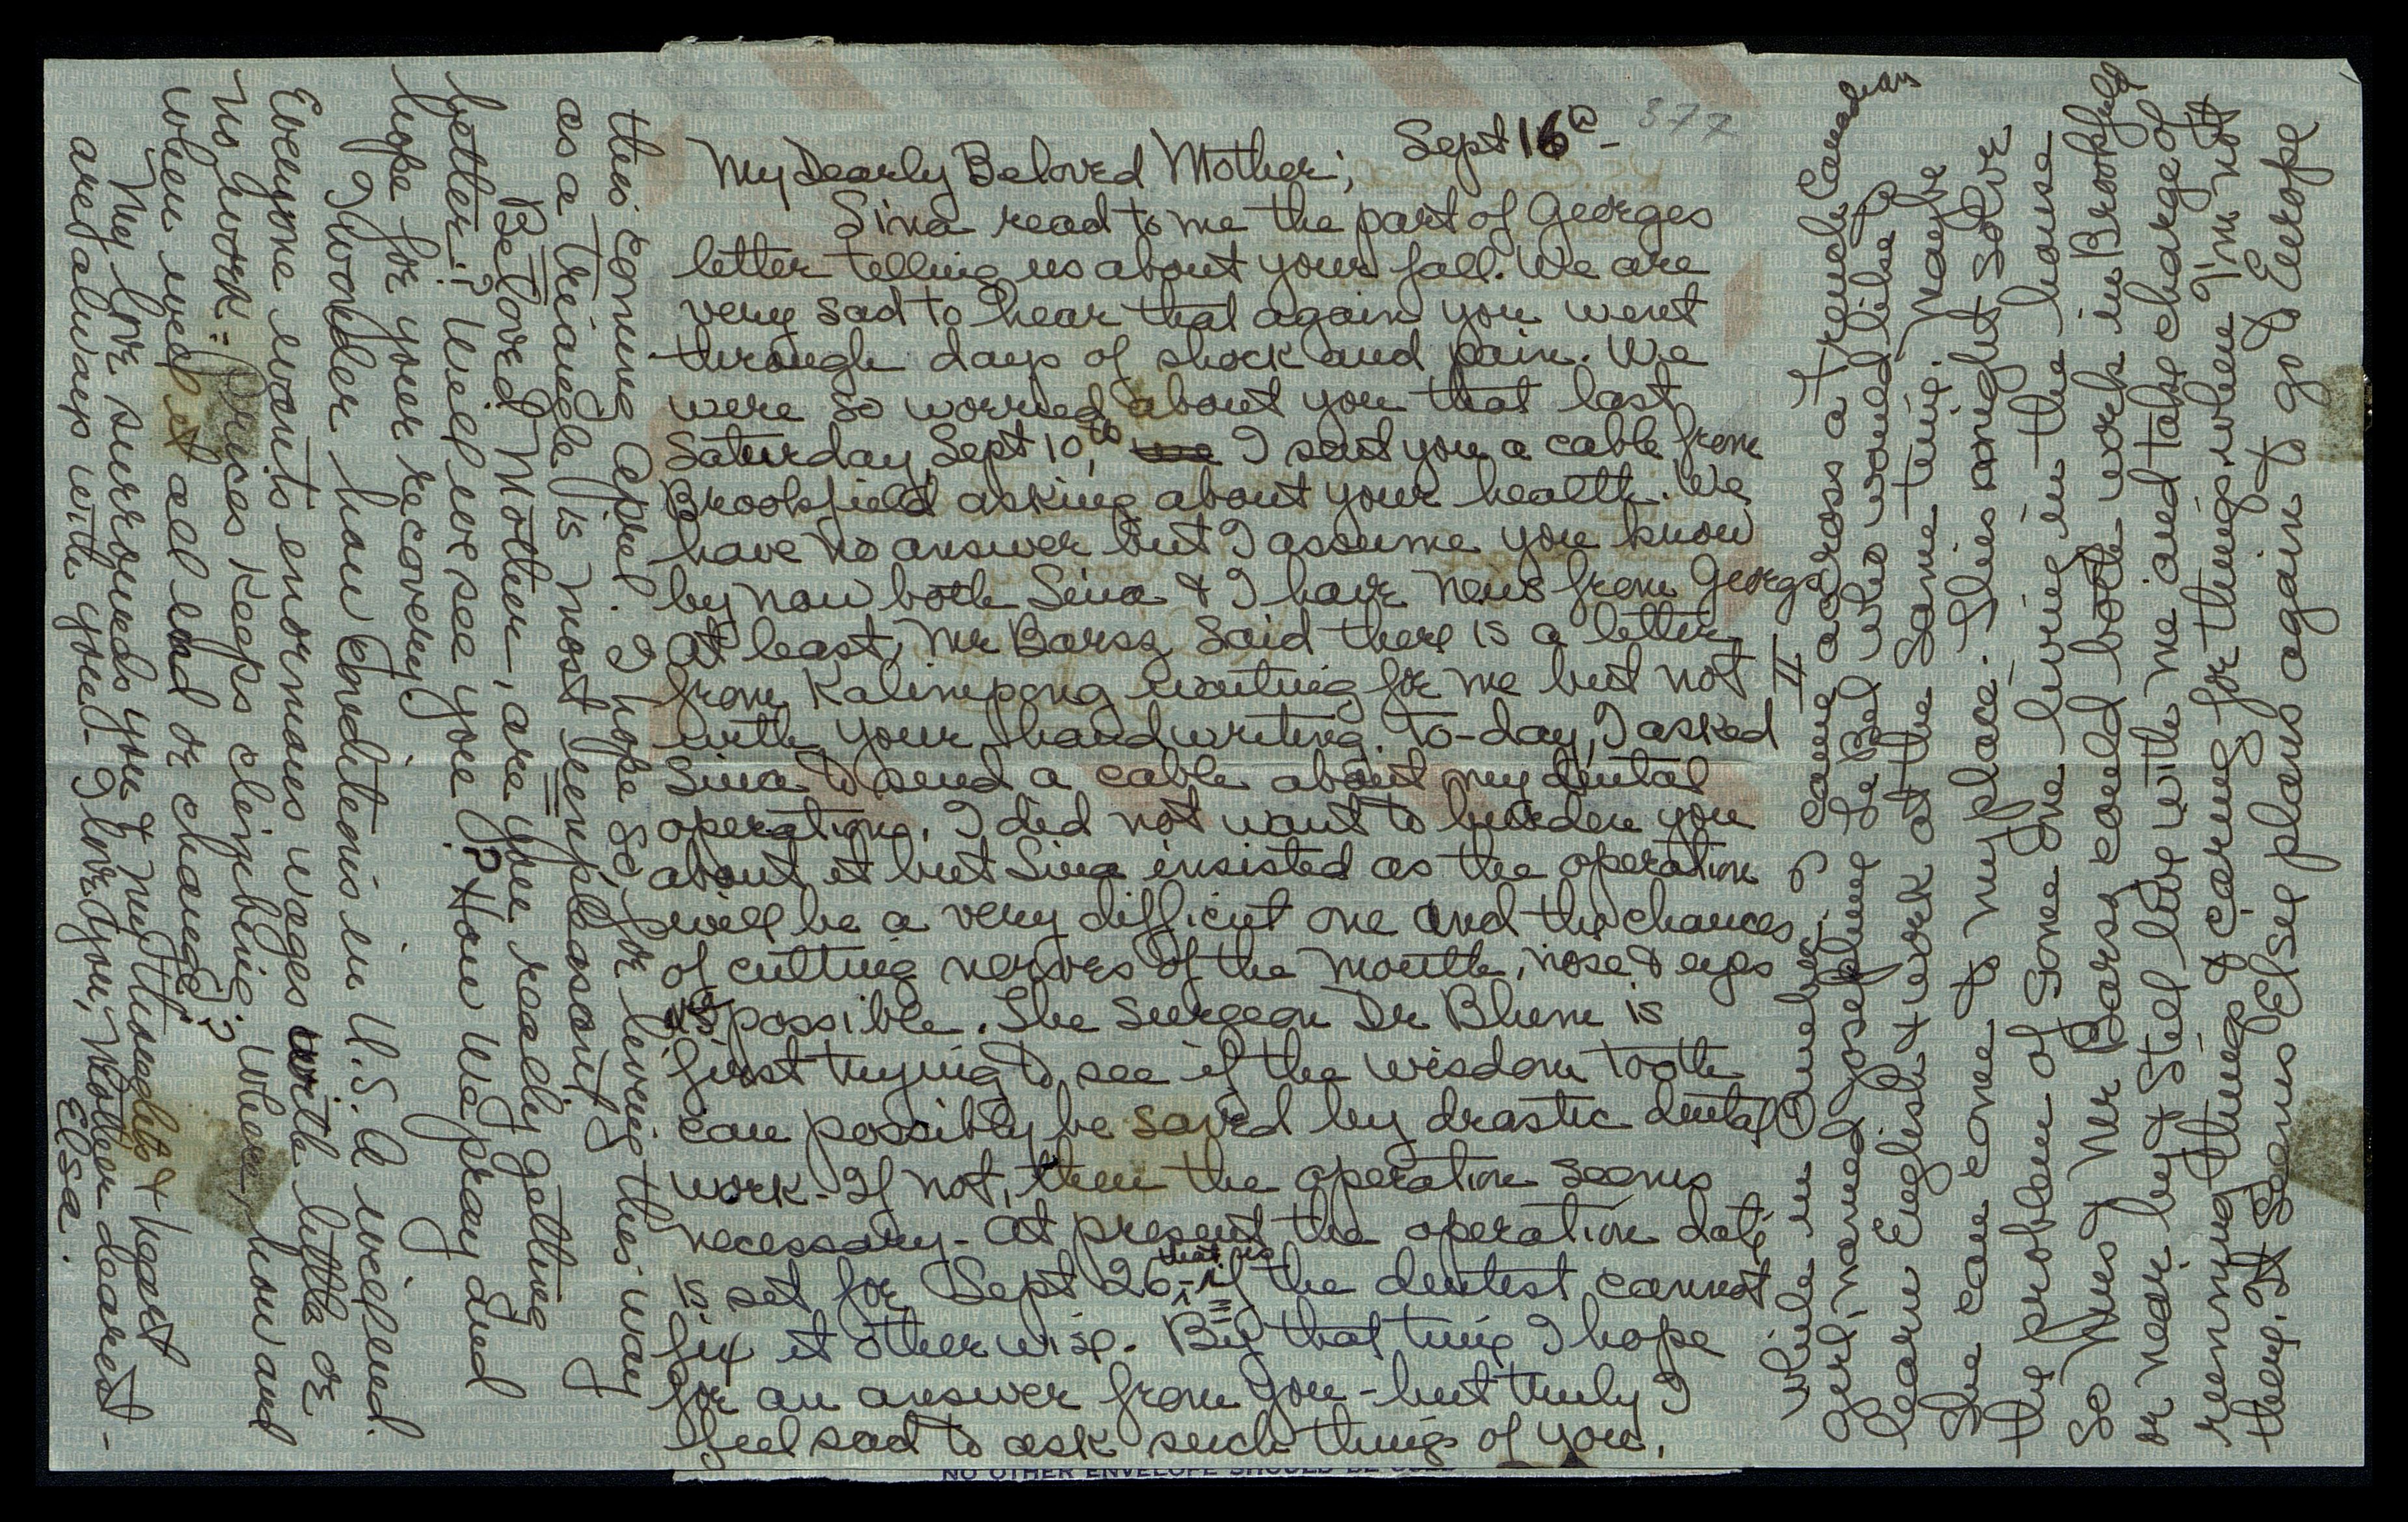 377
Sept 16th -
My Dearly Beloved Mother;
Sina read to me the part of Georges
letter telling us about your fall. We are
very sad to hear that again you went
through days of shock and pain. We
were so worried about you that last
Saturday, Sept 10th, I sent you a cable from
Brookfield asking about your health. We
have no answer but I assume you know
by now both Sina & I have news from George
at least, Mr Barsz said there is a letter
from Kalimpong waiting for me but not
with your handwriting. To-day, I asked
Sina to send a cable about my dental
operation. I did not want to burden you
about it but Sina insisted as the operation
will be a very difficult one and the chances
of cutting nerves of the mouth, nose & eyes
is possible. The Surgeon Dr Blum is
first trying to see if the wisdom tooth
can possibly be saved by drastic dental
work - If not, then the operation seems
necessary - at present the operation date
is set for Sept 26, - that is if the dentist cannot
fix it otherwise. By that time I hope
for an answer from you - but truly I
feel sad to ask such things of you.
II
While in Quebec, I came across a French Canadian
girl, named Josephine Le Bel who would like to
learn English & work at the same time. Maybe
she can come to my place. This might solve
the problem of some one living in the house
so Mrs & Mr Barsz could both work in Brookfield
or near by & still live with me and take charge of
running things & caring for things when I'm not
there. It seems Elsie plans again to go to Europe
this coming April. I hope so, for living this way
as a triangle is most unpleasant,
Beloved Mother, are you really getting
better? Will we see you? How we pray and
hope for your recovery.
I wonder how conditions in U.S.A will end.
Everyone wants enormous wages with little or
no work: Prices keeps climbing. Where, how and
when will it all end or change?
My love surrounds you & my thoughts & heart
are always with you - I love you, Mother dearest -
Elsa.
NO OTHER ENVELOPE SHOULD BE